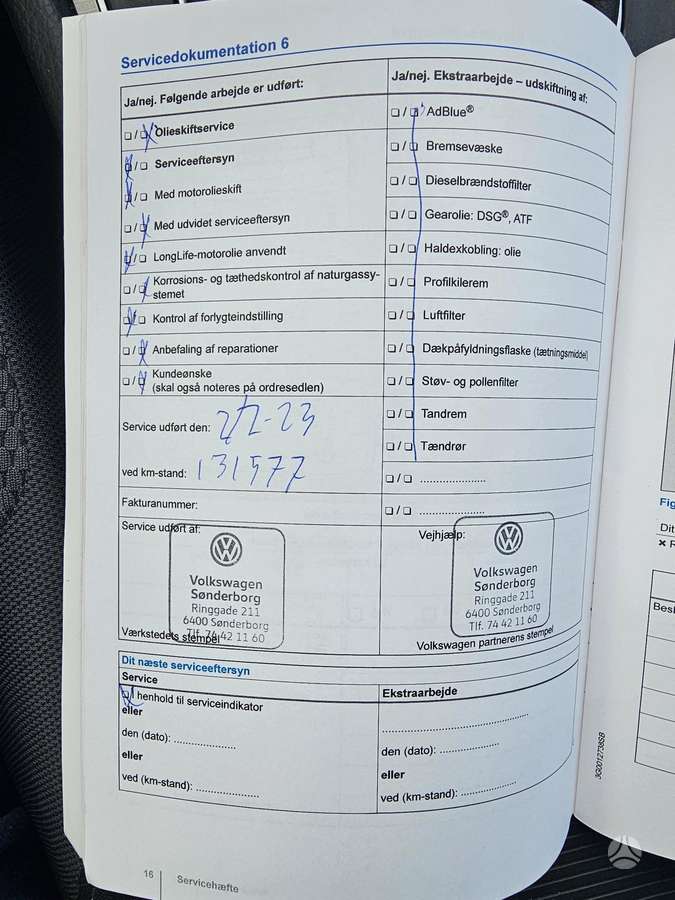 Servicedokumentation 6
Ja/nej. Følgende arbejde er udført:
❏ / ❏ Olieskiftservice
❏ / ❏ Serviceeftersyn
❏ / ❏ Med motorolieskift
❏ / ❏ Med udvidet serviceeftersyn
❏ / ❏ LongLife-motorolie anvendt
❏ / ❏ Korrosions- og tæthedskontrol af naturgassy-
stemet
❏ / ❏ Kontrol af forlygteindstilling
❏ / ❏ Anbefaling af reparationer
❏ / ❏ Kundeønske
(skal også noteres på ordresedlen)
Service udført den: 2/2-23
ved km-stand: 131577
Fakturanummer:
Service udført af:
Volkswagen
Sønderborg
Ringgade 211
6400 Sønderborg
Tlf. 74 42 11 60
Værkstedets stempel
Ja/nej. Ekstraarbejde – udskiftning af:
❏ / ❏ AdBlue®
❏ / ❏ Bremsevæske
❏ / ❏ Dieselbrændstoffilter
❏ / ❏ Gearolie: DSG®, ATF
❏ / ❏ Haldexkobling: olie
❏ / ❏ Profilkilerem
❏ / ❏ Luftfilter
❏ / ❏ Dækpåfyldningsflaske (tætningsmiddel)
❏ / ❏ Støv- og pollenfilter
❏ / ❏ Tandrem
❏ / ❏ Tændrør
❏ / ❏ ....................
❏ / ❏ ....................
Vejhjælp:
Volkswagen
Sønderborg
Ringgade 211
6400 Sønderborg
Tlf. 74 42 11 60
Volkswagen partnerens stempel
Dit næste serviceeftersyn
Service
❏ I henhold til serviceindikator
eller
den (dato): ...................
eller
ved (km-stand): ...................
Ekstraarbejde
............................................
den (dato): ..................
eller
ved (km-stand): .................
16 Servicehæfte
3G0012738SB
Fig
Dit
Besk